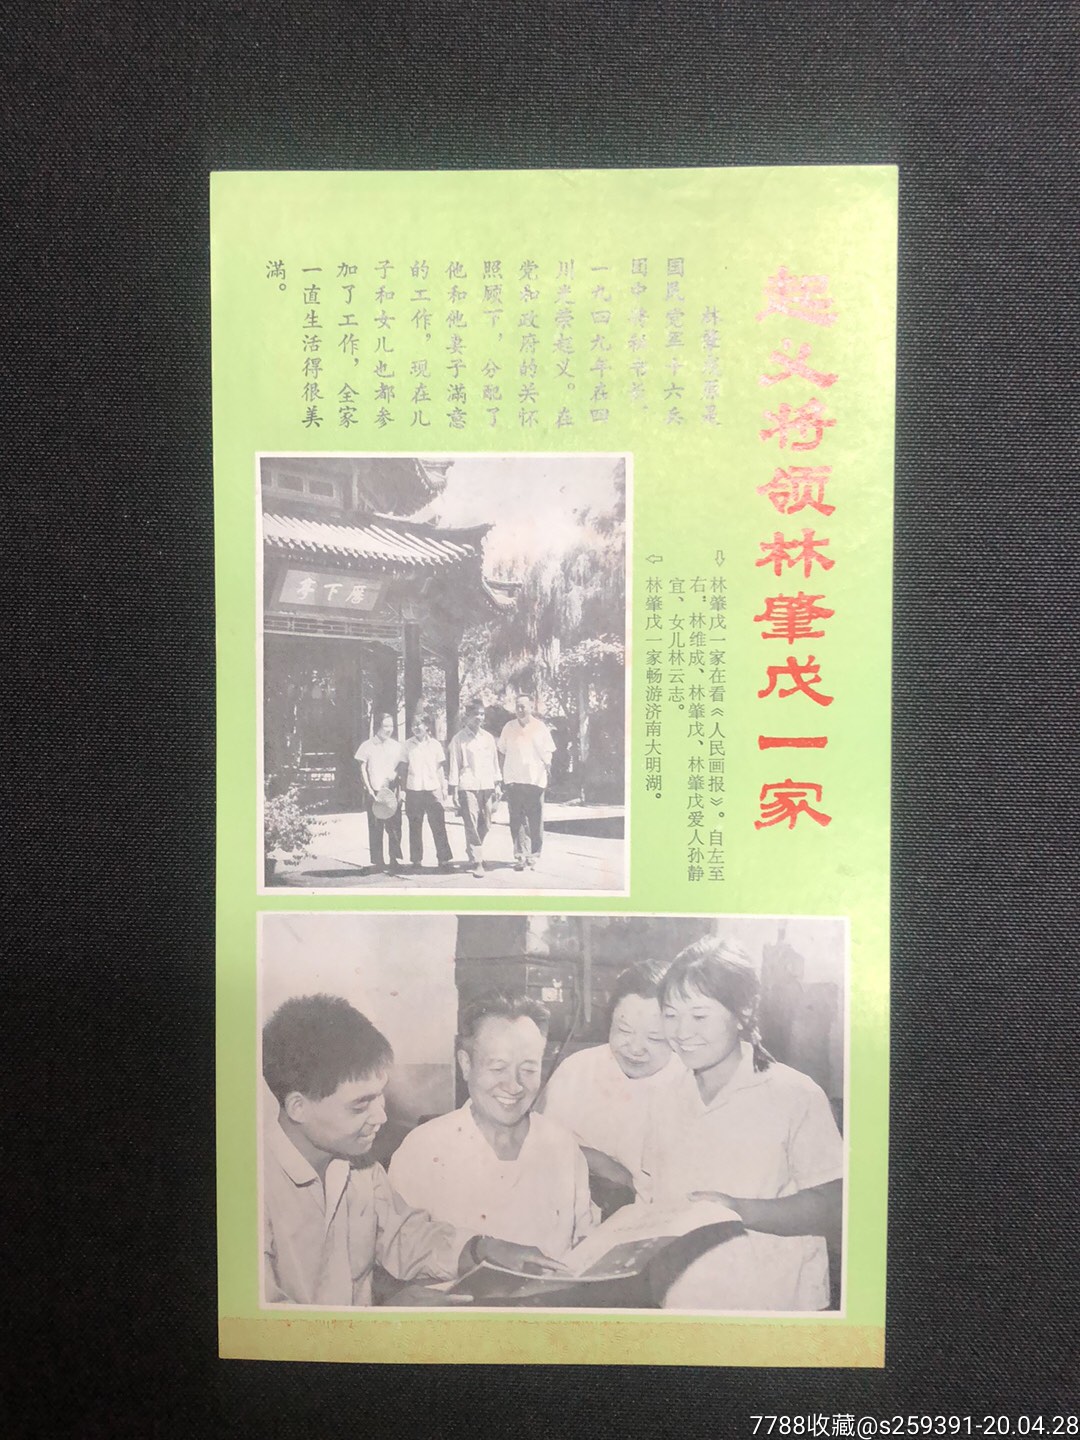 起义将领林肇戊一家
林肇戊原是
国民党军十六兵
团中将秘书长，
一九四九年在四
川光荣起义。在
党和政府的关怀
照顾下，分配了
他和他妻子满意
的工作。现在儿
子和女儿也都参
加了工作，全家
一直生活得很美
满。
⇩林肇戊一家在看《人民画报》。自左至
右：林维成、林肇戊、林肇戊爱人孙静
宜、女儿林云志。
⇦林肇戊一家畅游济南大明湖。
历下亭
7788收藏@s259391-20.04.28